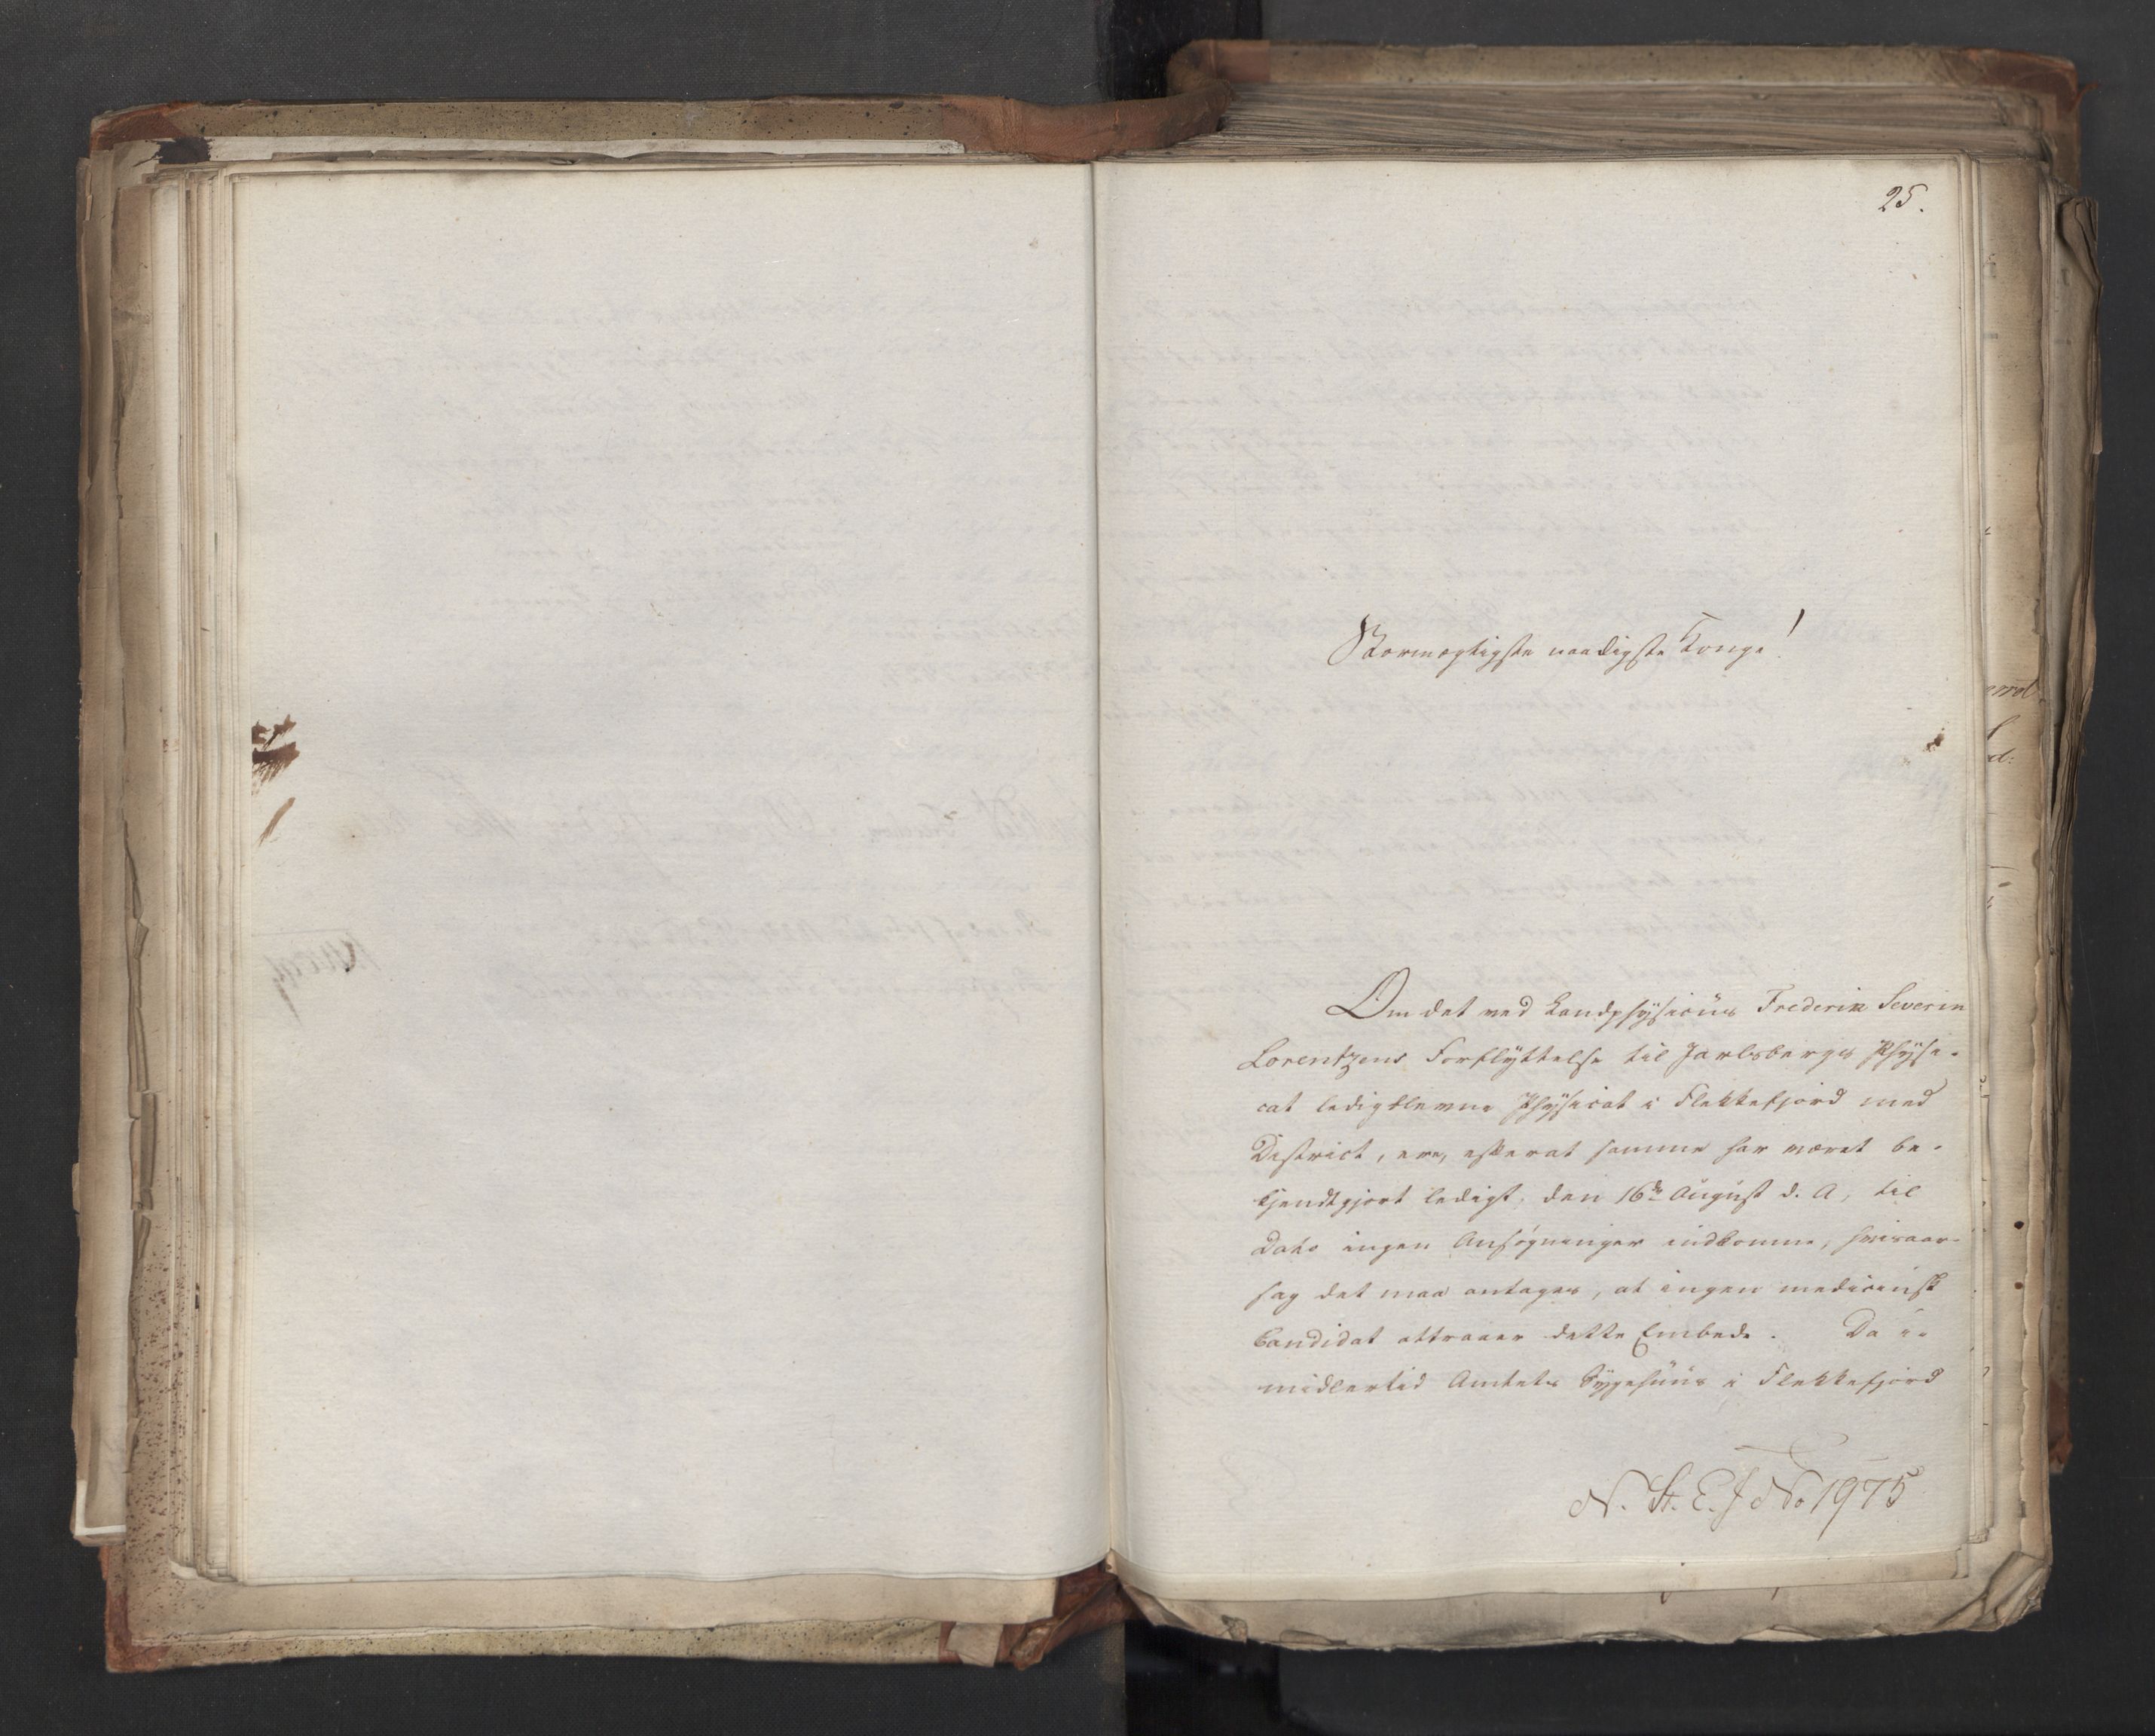 25.
Stormægtigste naadigste Konge!
Om det ved Landphysicus Frederik Severin
Lorentzens Forflyttelse til Jarlsbergs Physi-
cat ledigblevne Physicat i Flekkefjord med
District, ere, efterat samme har været be-
kjendtgjort ledigt, den 16de August d. A, til
Dato ingen Ansøgninger indkomne, hvisaar-
sag det maa antages, at ingen medicinsk
Candidat attraaer dette Embede. Da i-
midlertid Amtets Sygehuus i Flekkefjord
N. St. E. J No 1975